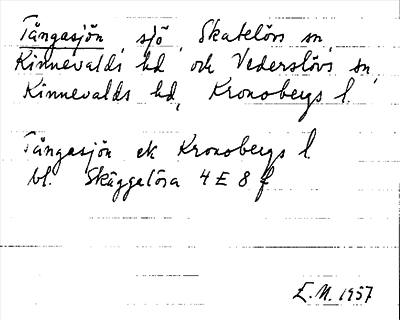 Tångasjön, sjö, Skatelövs sn,
Kinnevalds hd och Vederslövs sn,
Kinnevalds hd, Kronobergs l.
Tångasjön ek Kronobergs l
bl. Skäggalösa 4 E 8 f
E.M. 1957